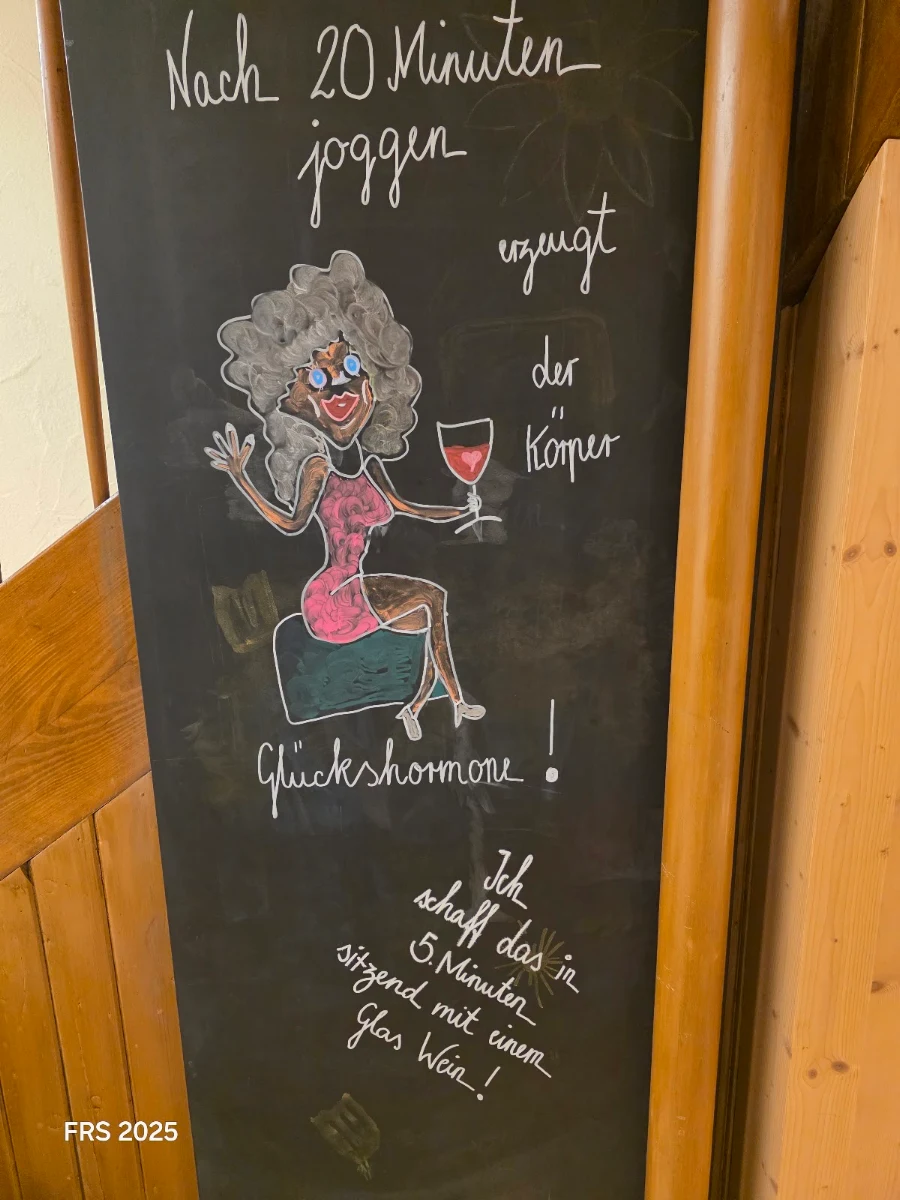 Nach 20 Minuten
joggen
erzeugt
der
Körper
Glückshormone !
Ich
schaff das in
5.Minuten
sitzend mit einem
Glas Wein !
FRS 2025